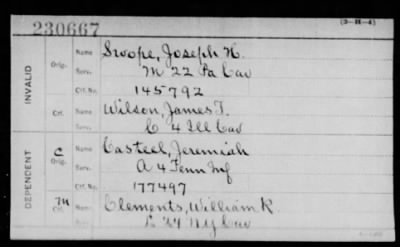 (3-H-4)
230667
INVALID
Orig.
Name Swope, Joseph H.
Serv. M 22 Pa Cav
Ctf. No. 145792
Ctf.
Name Wilson, James T.
Serv. C 4 Ill Cav
DEPENDENT
C
Orig.
Name Casteel, Jeremiah
Serv. A 4 Tenn Inf
Ctf. No. 177497
Ctf.
Name Clements, William R.
Serv. L 24 N.Y Cav